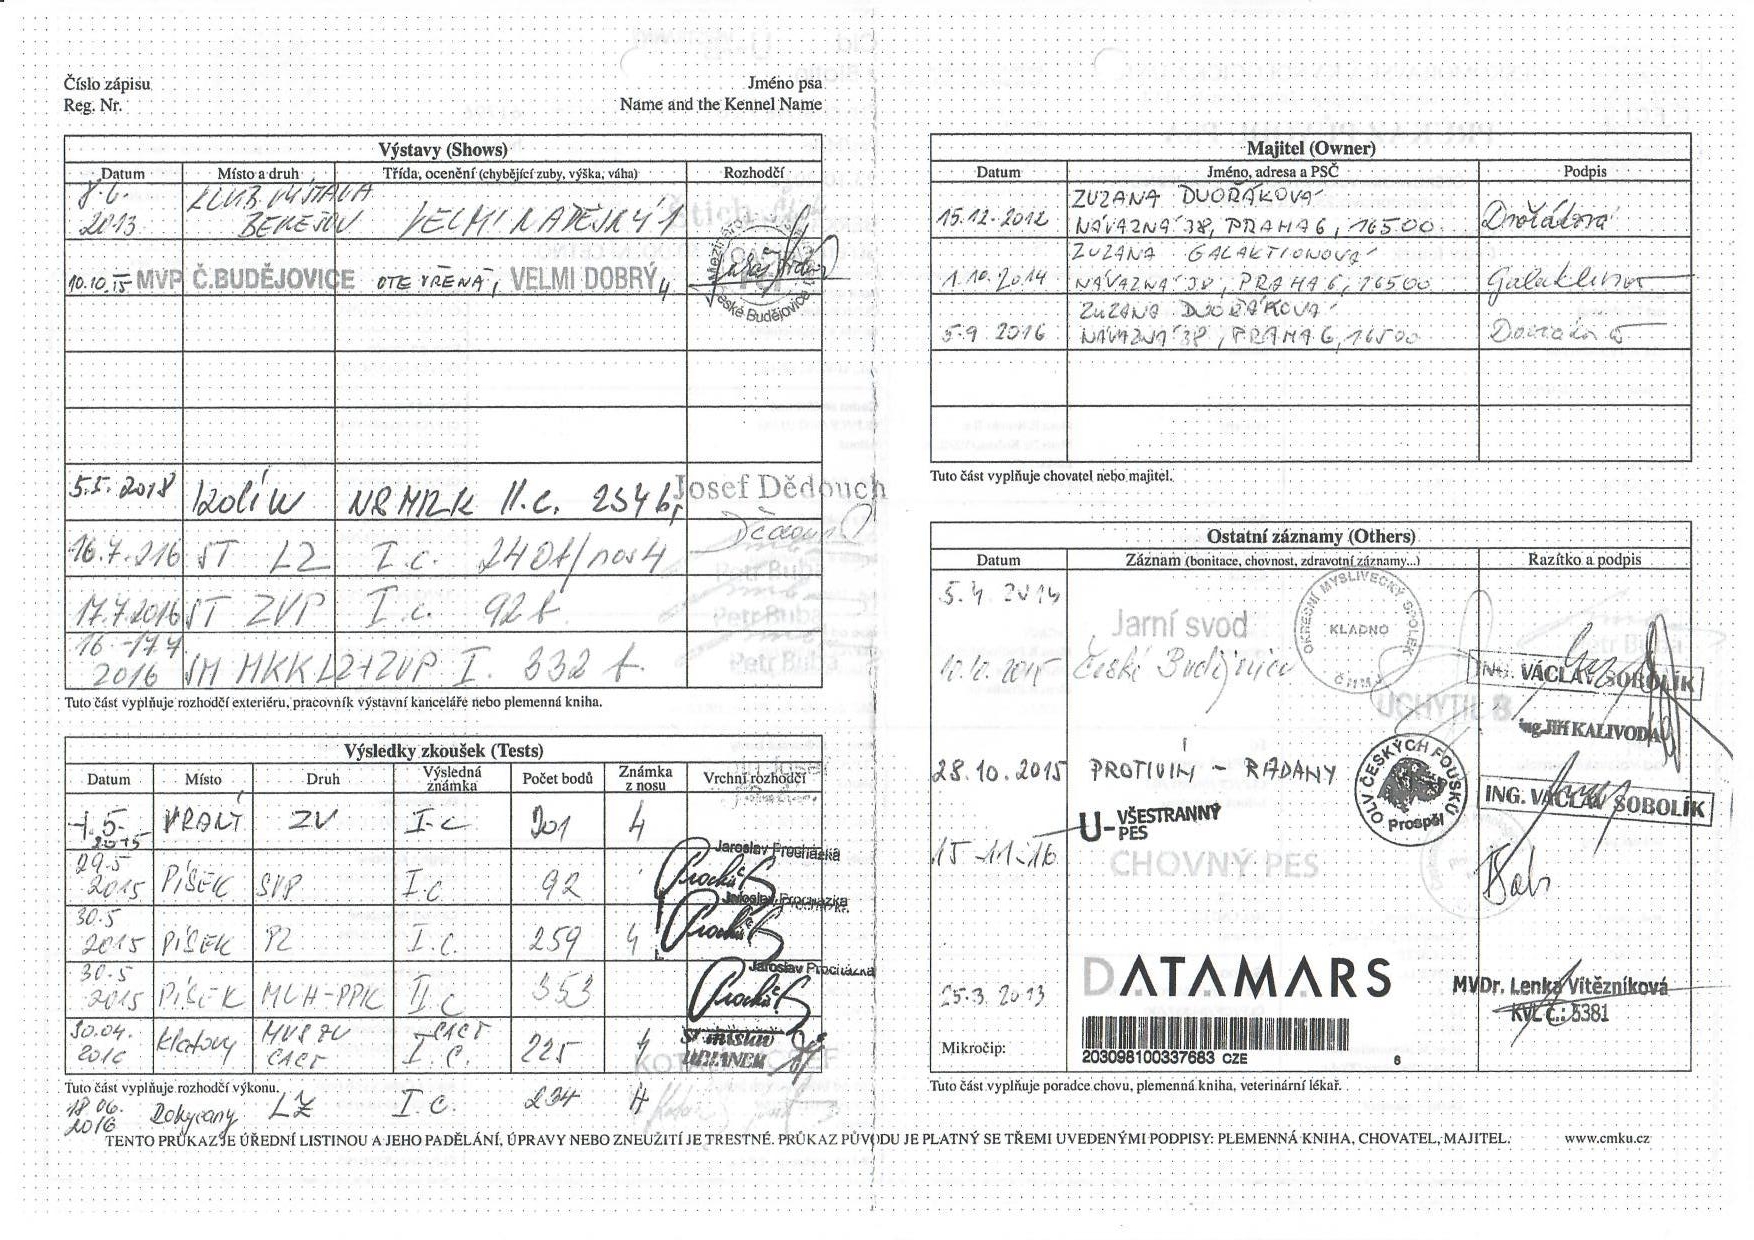 Číslo zápisu
Reg. Nr.
Jméno psa
Name and the Kennel Name
Výstavy (Shows)
Datum Místo a druh Třída, ocenění (chybějící zuby, výška, váha) Rozhodčí
8.6. 2013 KLUB. VÝSTAVA VELMI NADĚJNÝ 1
10.10.15 MVP Č.BUDĚJOVICE OTEVŘENÁ, VELMI DOBRÝ, 4
České Budějovice
5.5.2018 II.c. 254 b, Josef Dědouch
16.7.216 ST LZ I.c. 240b/nos4 Petr Buba
17.7.2016 ST ZVP I.c. 92 b. Petr Buba
16.-17.7 2016 MKK LZ+ZVP I. 332 b. Petr Buba
Tuto část vyplňuje rozhodčí exteriéru, pracovník výstavní kanceláře nebo plemenná kniha.
Výsledky zkoušek (Tests)
Datum Místo Druh Výsledná známka Počet bodů Známka z nosu Vrchní rozhodčí
5. 2015 ZV I.c 201 4
29.5 2015 PÍSEK SVP I.c 92 Jaroslav Procházka
30.5 2015 PÍSEK PZ I.c. 259 4 Jaroslav Procházka
30.5 2015 PÍSEK II.c 353 Jaroslav Procházka
30.04. 2016 Klatovy CACT CACT I.c. 225 4 Stanislav URBANEK
Tuto část vyplňuje rozhodčí výkonu.
18 06. 2016 Rokycany LZ I.c. 234 4
Majitel (Owner)
Datum Jméno, adresa a PSČ Podpis
15.12.2012 ZUZANA DVOŘÁKOVÁ Dvořáková
NÁVAZNÁ 38, PRAHA 6, 165 00
1.10.2014 ZUZANA GALAKTIONOVÁ
NÁVAZNÁ 38, PRAHA 6, 165 00
5.9 2016 ZUZANA DVOŘÁKOVÁ
NÁVAZNÁ 38, PRAHA 6, 165 00
Tuto část vyplňuje chovatel nebo majitel.
Ostatní záznamy (Others)
Datum Záznam (bonitace, chovnost, zdravotní záznamy...) Razítko a podpis
5.4 2014 Jarní svod
OKRESNÍ MYSLIVECKÝ SPOLEK KLADNO
2015 České Budějovice
ING. VÁCLAV SOBOLÍK
UCHYTIL B
ing. Jiří KALIVODA
28.10.2015 PROTIVÍN - RADANY
OLV ČESKÝCH FOUSKŮ Prospěl
ING. VÁCLAV SOBOLÍK
U-VŠESTRANNÝ PES
15-11.16 CHOVNÝ PES
DATAMARS
25.3.2013 MVDr. Lenka Vítězníková
KVL č.: 5381
Mikročip: 203098100337683 CZE 6
Tuto část vyplňuje poradce chovu, plemenná kniha, veterinární lékař.
TENTO PRŮKAZ JE ÚŘEDNÍ LISTINOU A JEHO PADĚLÁNÍ, ÚPRAVY NEBO ZNEUŽITÍ JE TRESTNÉ. PRŮKAZ PŮVODU JE PLATNÝ SE TŘEMI UVEDENÝMI PODPISY: PLEMENNÁ KNIHA, CHOVATEL, MAJITEL. www.cmku.cz